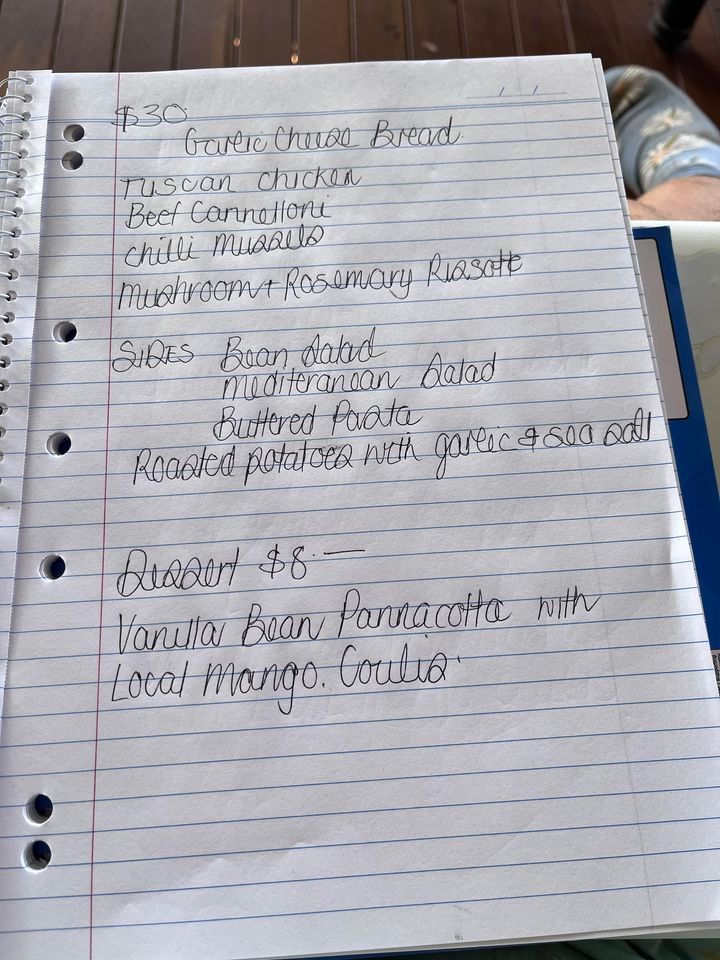 $30
Garlic Cheese Bread
Tuscan chicken
Beef Cannelloni
chilli mussels
mushroom + Rosemary Risotto
SIDES Bean salad
mediteranean salad
Buttered Pasta
Roasted potatoes with garlic & sea salt
Dessert $8.—
Vanilla Bean Pannacotta with
Local mango. Coulis.